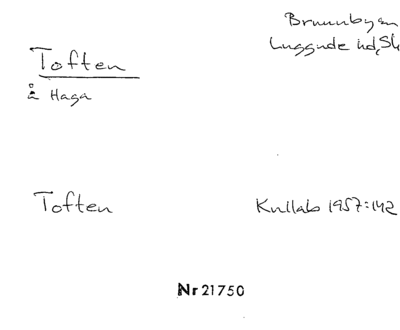 Toften
å Haga
Brunnbyen
Luggude hd, Sk
Toften
Kullab 1957:142
Nr 21750